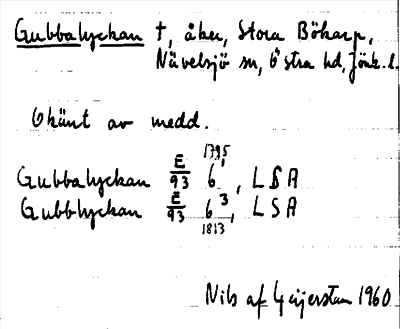 Gubbalyckan †, åker, Stora Bökarp,
Nävelsjö sn, Östra hd, Jönk. l.
Okänt av medd.
1795
Gubbalyckan E/93 6¹, LSA
Gubblyckan E/93 6³, LSA
1813
Nils af Geijerstam 1960